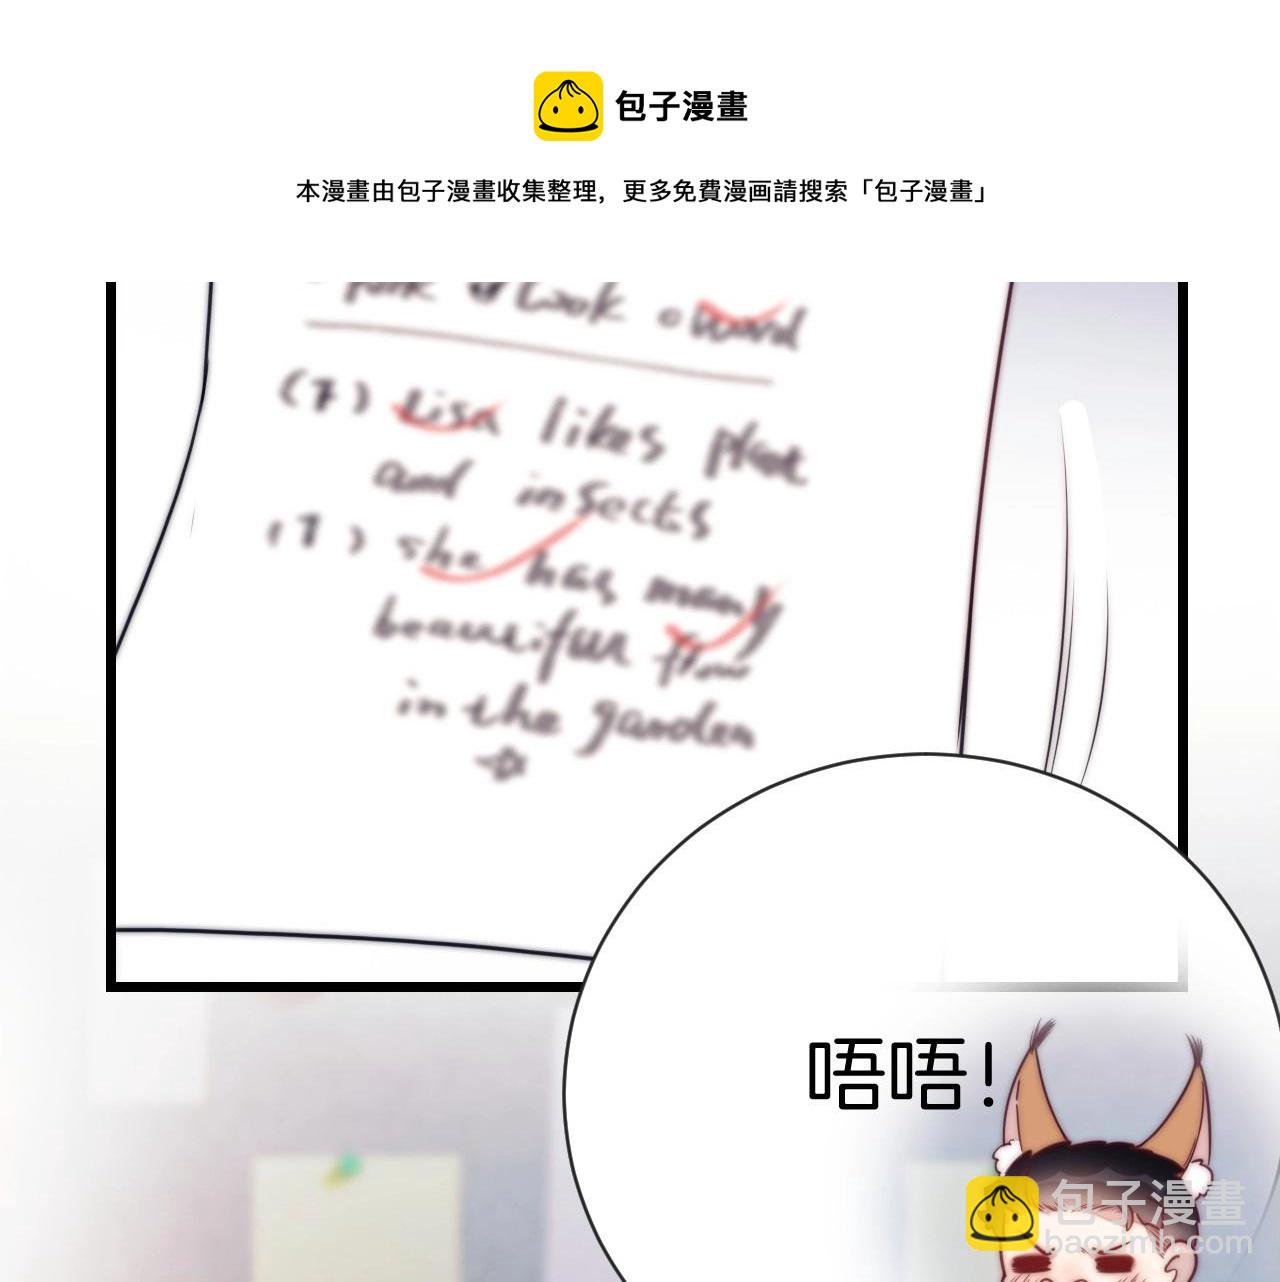 包子漫畫
本漫畫由包子漫畫收集整理，更多免費漫画請搜索「包子漫畫」
look word
(7) Lisa likes plant
and insects
(1) she has many
beautiful flow
in the garden
唔唔！
包子漫畫
baozimh.com